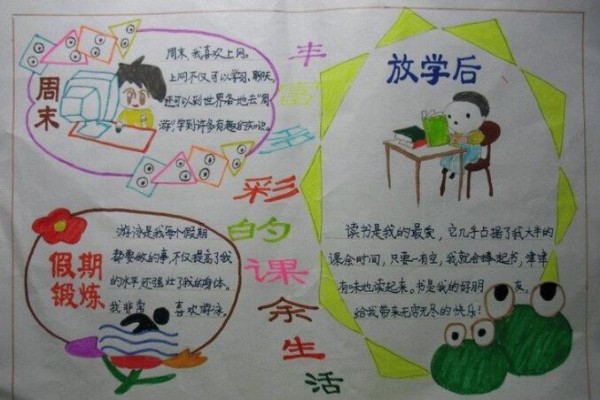 周末
周末,我喜欢上网。
上网不仅可以学习,聊天,
还可以到世界各地去“周
游”,学到许多有趣的知识。
丰富多彩的课余生活
放学后
读书是我的最爱,它几乎占据了我大半的
课余时间,只要一有空,我就会捧起书,津津
有味地读起来。书是我的好朋友,
给我带来无穷无尽的快乐!
假期
锻炼
游泳是我每个假期
都要做的事,不仅提高了我
的水平,还强壮了我的身体。
我非常喜欢游泳。